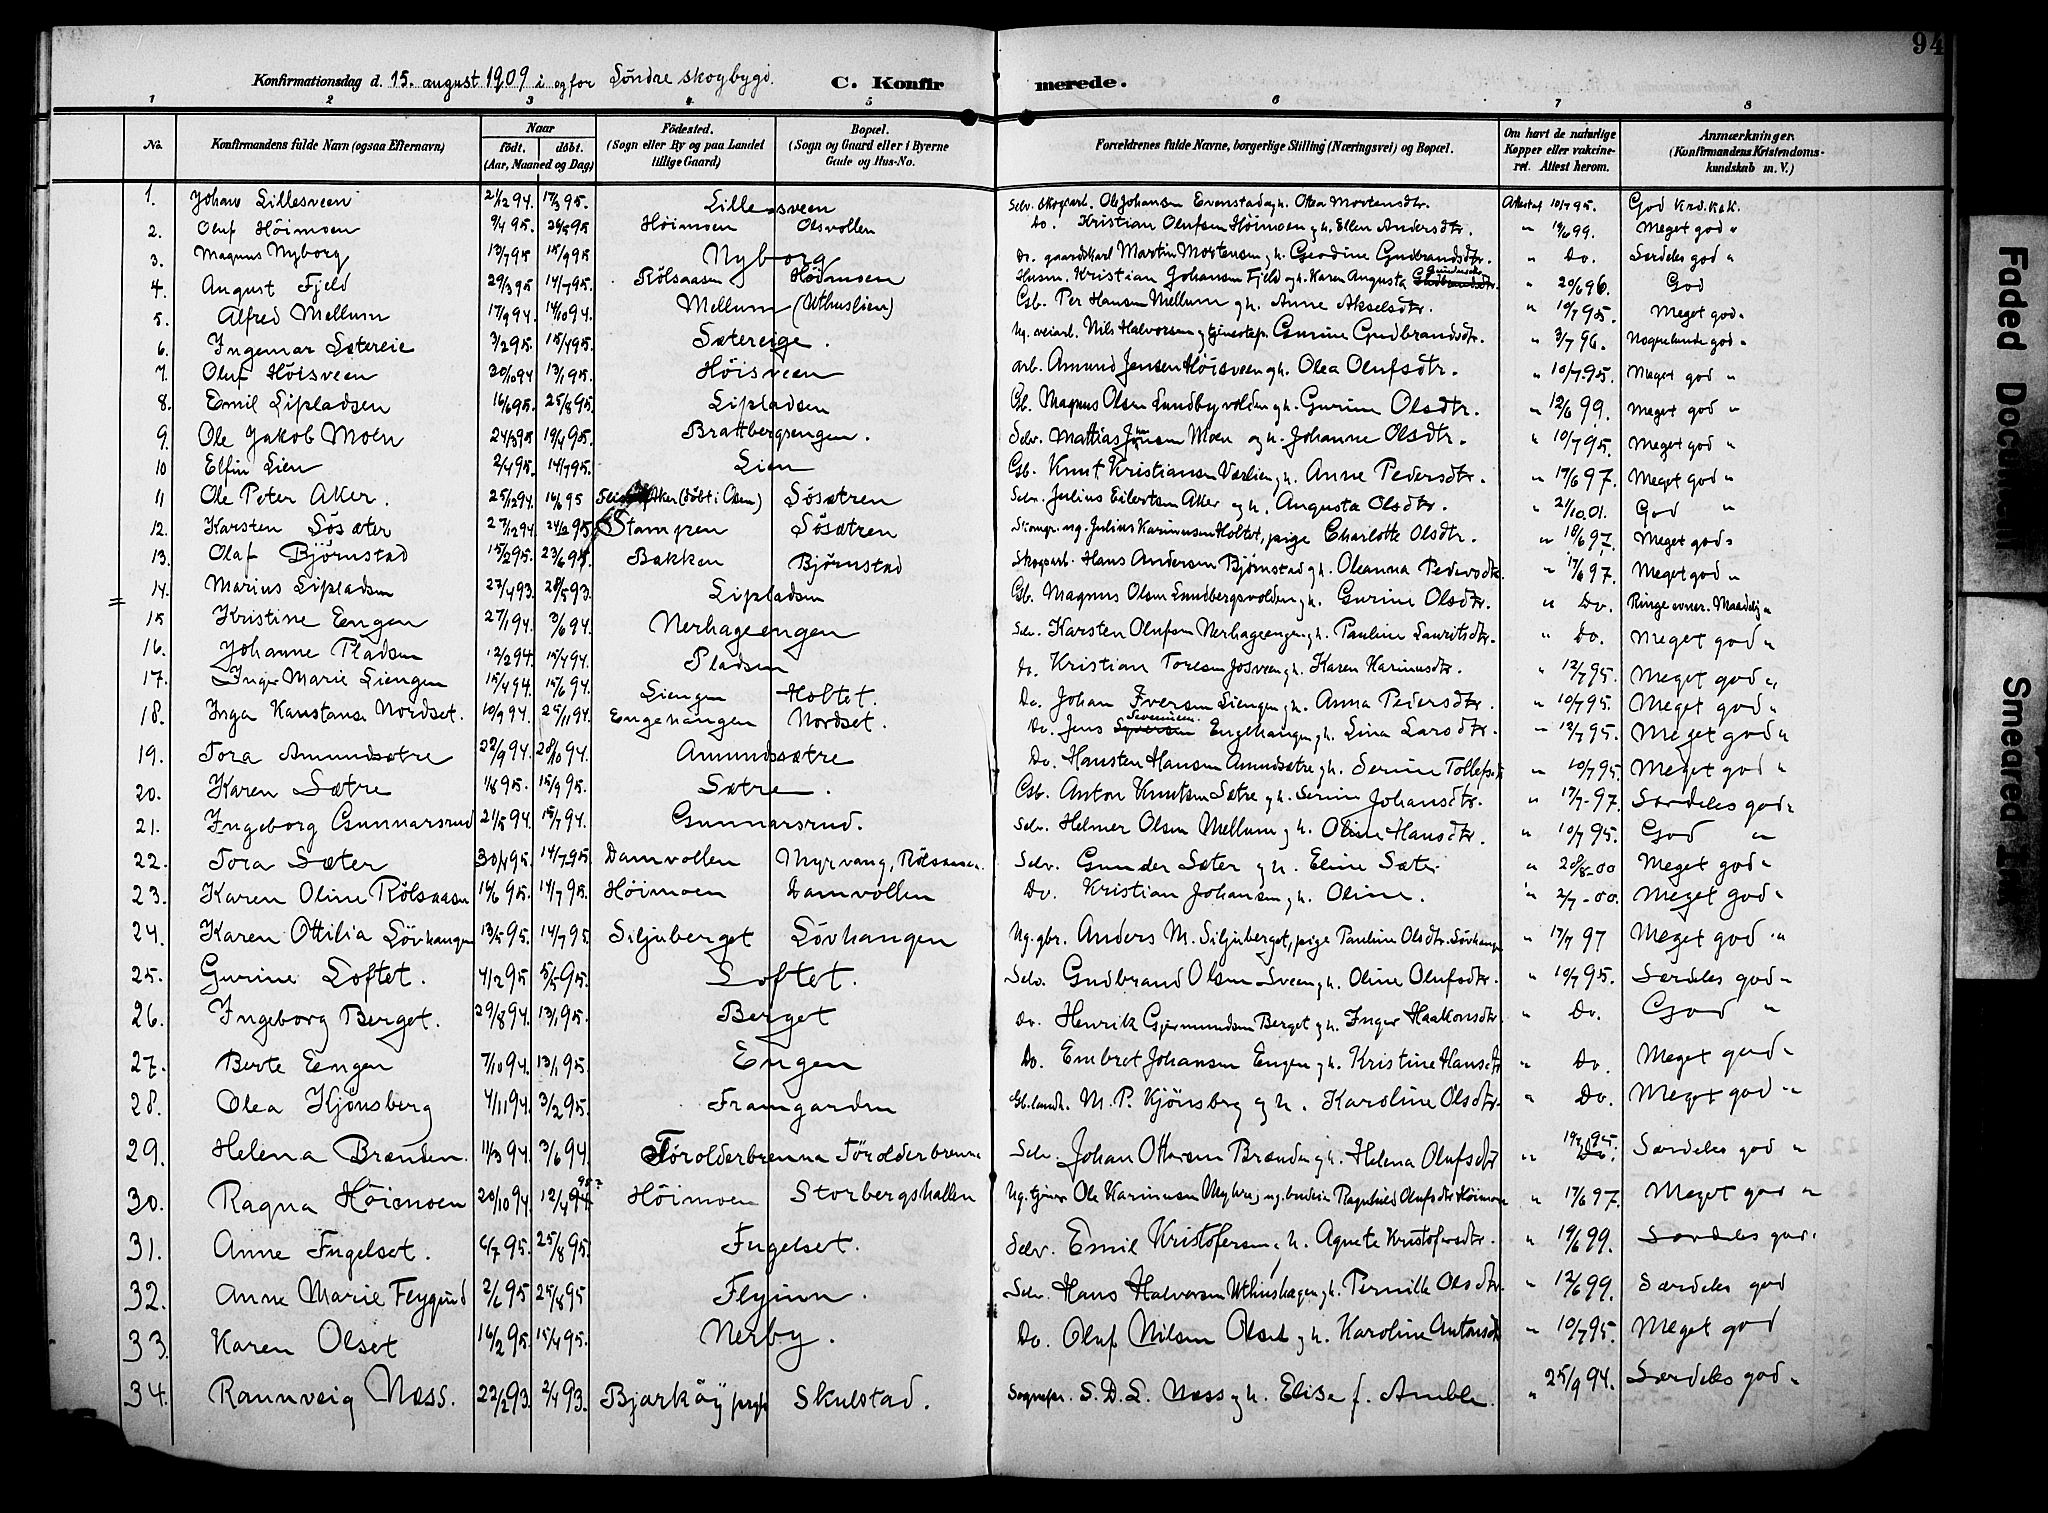 94
Konfirmationsdag d. 15. august 1909 i og for Søndre skogbygd.
C. Konfirmerede.
1 2 3 4 5 6 7 8
No. Konfirmandens fulde Navn (ogsaa Efternavn) Naar født. døbt. (Aar, Maaned og Dag) Fødested. (Sogn eller By og paa Landet tillige Gaard) Bopæl. (Sogn og Gaard eller i Byerne Gade og Hus-No. Forældrenes fulde Navne, borgerlige Stilling (Næringsvei) og Bopæl. Om havt de naturlige Kopper eller vakcineret. Attest herom. Anmærkninger. (Konfirmandens Kristendomskundskab m. V.)
1. Johan Lillesveen 21/12 94. 17/3 95. Lillesveen Selv. skogsarb. Ole Johansen Evenstad og h. Othea Mortensdtr. Attestert 10/7 95. God krd.ksk.
2. Oluf Høimoen 9/4 95. 26/5 95 Høimoen Olsvollen Do. Kristian Olufsen Høimoen g h. Ellen Andersdtr. " 19/6 99. Meget god "
3. Magnus Nyborg 13/7 95 15/9 95 Nyborg Do. gaardkarl Martin Mortensen g h. Geodine Gudbrandsdtr. " Do. Særdeles god "
4. August Fjeld 29/3 95 14/7 95. Rølsaasen Høimoen Husm. Kristian Johansen Fjeld og h. Karen Augusta Gundersdtr. " 20/6 96. God
5. Alfred Mellum 17/9 94 14/10 94. Mellum (Uthuslien) Gb. Per Hansen Mellum g h. Anne Akselsdtr. " 10/7 95. Meget god "
6. Ingemar Sætereie 3/2 95. 15/4 95. Sætereige. Ug. veiarb. Nils Halvorsen og tjenestep. Gurine Gudbrandsdtr. " 3/7 96. Nogenlunde god "
7. Oluf Høisveen 20/10 94 13/1 95. Høisveen arb. Amund Jensen Høisveen g h. Olea Olufsdtr. " 10/7 95. Meget god "
8. Emil Lipladsen 16/6 95. 25/8 95. Lipladsen Gb. Magnus Olsen Lundbyvolden g h. Gurine Olsdtr. " 12/6 99. Meget god "
9. Ole Jakob Moen 24/3 95 19/4 95. Brattbergsengen. Selv. Mattias Jensen Moen og h. Johanne Olsdtr. " 10/7 95. Meget god "
10 Elfin Lien 2/4 95. 14/7 95. Lien Gb. Knut Kristiansen Væslien g h. Anne Pedersdtr. " 17/6 97. Meget god "
11 Ole Peter Aker. 25/12 94. 16/6 95 Aker (døbt i Osen) Søsætren Selv. Julius Eilertsen Aker og h. Augusta Olsdtr. " 21/10.01. God "
12. Karsten Søsæter 27/12 94. 24/2 95. Stampen Søsætren Julius Karinusen Holtet, pige Charlotte Olsdtr. " 18/6 97. Meget god "
13. Olaf Bjørnstad 15/2 95. 23/6 95. Bakken Bjørnstad Skogsarb. Hans Andersen Bjørnstad g h. Oleanna Pedersdtr. " 17/6 97. Meget god "
14. Marius Lipladsen 27/4 93. 28/5 93. Lipladsen Gb. Magnus Olsen Lundbergsvolden g h. Gurine Olsdtr. " Do. Ringe evner. Maadelig "
15 Kristine Engen 27/1 94. 3/6 94. Nerhageengen Selv. Karsten Olufsen Nerhageengen g h. Pauline Lauritsdtr. " Do. Meget god "
16. Johanne Pladsen 12/2 94. 15/4 94. Pladsen Do. Kristian Toresen Josveen g h. Karen Karinusdtr. " 12/7 95. Meget god "
17. Inger Marie Liengen 15/4 94. 15/6 94. Liengen Holtet. Do. Johan Iversen Liengen g h. Anna Pedersdtr. " 10/7 95. Meget god "
18. Inga Konstanse Nordset. 10/9 94. 25/11 94. Engehaugen Nordset. Do. Jens Severinsen Engehaugen g h. Lina Larsdtr. " 12/7 95. Meget god "
19. Tora Amundsætre 22/9 94. 28/10 94. Amundssætre Do. Hansten Hansen Amundsætre g h. Serine Tollefsdtr " 10/7 95. Meget god "
20. Karen Sætre 1/8 95. 15/9 95. Sætre. Gb. Anton Knutsen Sætre g h. Serine Johansdtr. " 17/7-97. Særdeles god "
21. Ingeborg Gunnarsrud 21/5 94. 15/7 94. Gunnarsrud. Selv. Helmer Olsen Mellum g h. Oline Hansdtr. " 10/7 95. God "
22. Tora Sæter 30/4 95. 14/7 95. Damvollen Myrvang, Rølsaasen. Selv. Gunder Sæter g h. Eline Sæter " 28/8-00 Meget god "
23. Karen Oline Rølsaasen 16/6 95. 14/7 95. Høimoen Damvollen Do. Kristian Johansen g h. Oline. " 2/7-00. Meget god "
24. Karen Ottilia Løvhaugen 13/5 95. 14/7 95. Siljuberget Løvhaugen Ug. gbr. Anders M. Siljuberget, pige Pauline Olsdtr. Løvhaugen " 17/7 97 Meget god "
25. Gurine Loftet. 4/2 95 5/5 95. Loftet. Selv. Gudbrand Olsen Sveen g h. Oline Olufsdtr. " 10/7 95. Særdeles god "
26. Ingeborg Berget. 29/8 94. 13/1 95. Berget Do. Henrik Gjermundsen Berget g h. Inger Haakonsdtr. " Do. God "
27. Berte Engen 7/10 94. 13/1 95. Engen Do. Embret Johansen Engen g h. Kristine Hansdtr " Do. Meget god "
28. Olea Kjønsberg 4/11 94. 3/2 95. Framgarden Gb. landh. M. P. Kjønsberg g h. Karoline Olsdtr. " Do. Meget god "
29. Helena Brænden. 11/3 94. 3/6 94. Tørolderbrenna Tørolderbrenna Selv. Johan Ottosen Brænden g h. Helena Olufsdtr " 19/7 95. Særdeles god "
30. Ragna Høimoen 20/10 94. 12/4 94. 95? Høimoen Storbergshallen Ug. tjener Ole Karinusen Myhre, ug. budeie Ragnhild Olufsdtr Høimoen " 17/6 97. Meget god "
31. Anne Ingelset. 6/7 95. 25/8 95. Ingelset. Selv. Emil Kristofersen, h. Agnete Kristofersdtr. " 19/6 99. Særdeles god.
32. Anne Marie Flygind 2/6 95 25/8 95 Flyinn. Selv. Hans Halvorsen Uthushagen g h. Pernille Olsdtr. " 12/6 99. Særdeles god
33. Karen Olset 16/2 95. 15/4 95. Nerby. Do. Oluf Nilsen Olset g h. Karoline Antonsdtr " 10/7 95. Meget god
34. Raunveig Næss. 22/2 93. 2/4 93. Bjarkøy prgj. Skulstad. Sognepr. S. D. S. Næss g h. Elise f. Amble. " 25/9 94. Særdeles god "
Faded Document
Smeared Ink